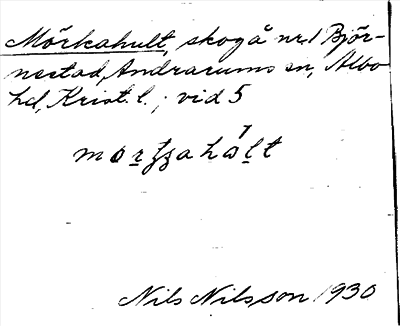 Mörkahult, skog å nr 1 Björ-
nestad, Andrarums sn, Albo
hd, Krist. l. ; vid 5
Nils Nilsson 1930